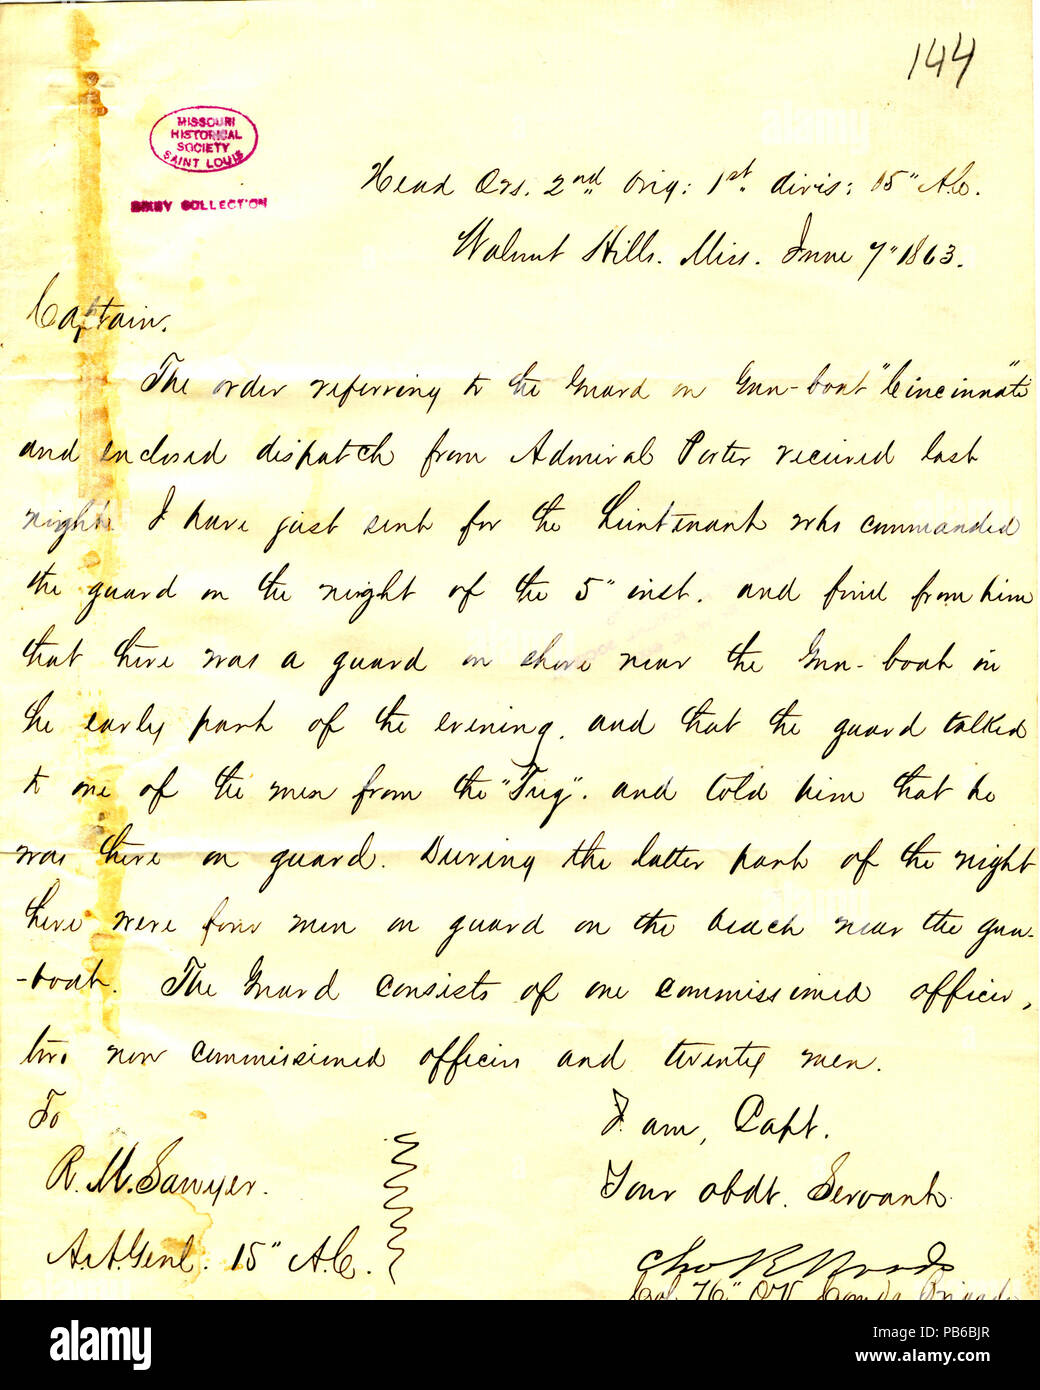 144
MISSOURI
HISTORICAL
SOCIETY
SAINT LOUIS
BIXBY COLLECTION
Head Qrs. 2nd Brig: 1st. divis: 15" A.C.
Walnut Hills. Miss. June 7" 1863.
Captain.
The order referring to the Guard on Gun-boat "Cincinnati"
and enclosed dispatch from Admiral Porter received last
night. I have just sent for the Lieutenant who commanded
the guard on the night of the 5" inst. and find from him
that there was a guard on shore near the Gun-boat in
the early part of the evening, and that the guard talked
to one of the men from the "Tug". and told him that he
was there on guard. During the latter part of the night
there were four men on guard on the beach near the gun-
-boat. The Guard consists of one commissioned officer,
two non commissioned officers and twenty men.
To
I am, Capt.
R. M. Sawyer.
Your obdt. Servant
A.A.Genl. 15" A.C.
Chas R Woods
Col. 76" O.V. Comdg Brigade
alamy
Image ID: PB6BJR
www.alamy.com